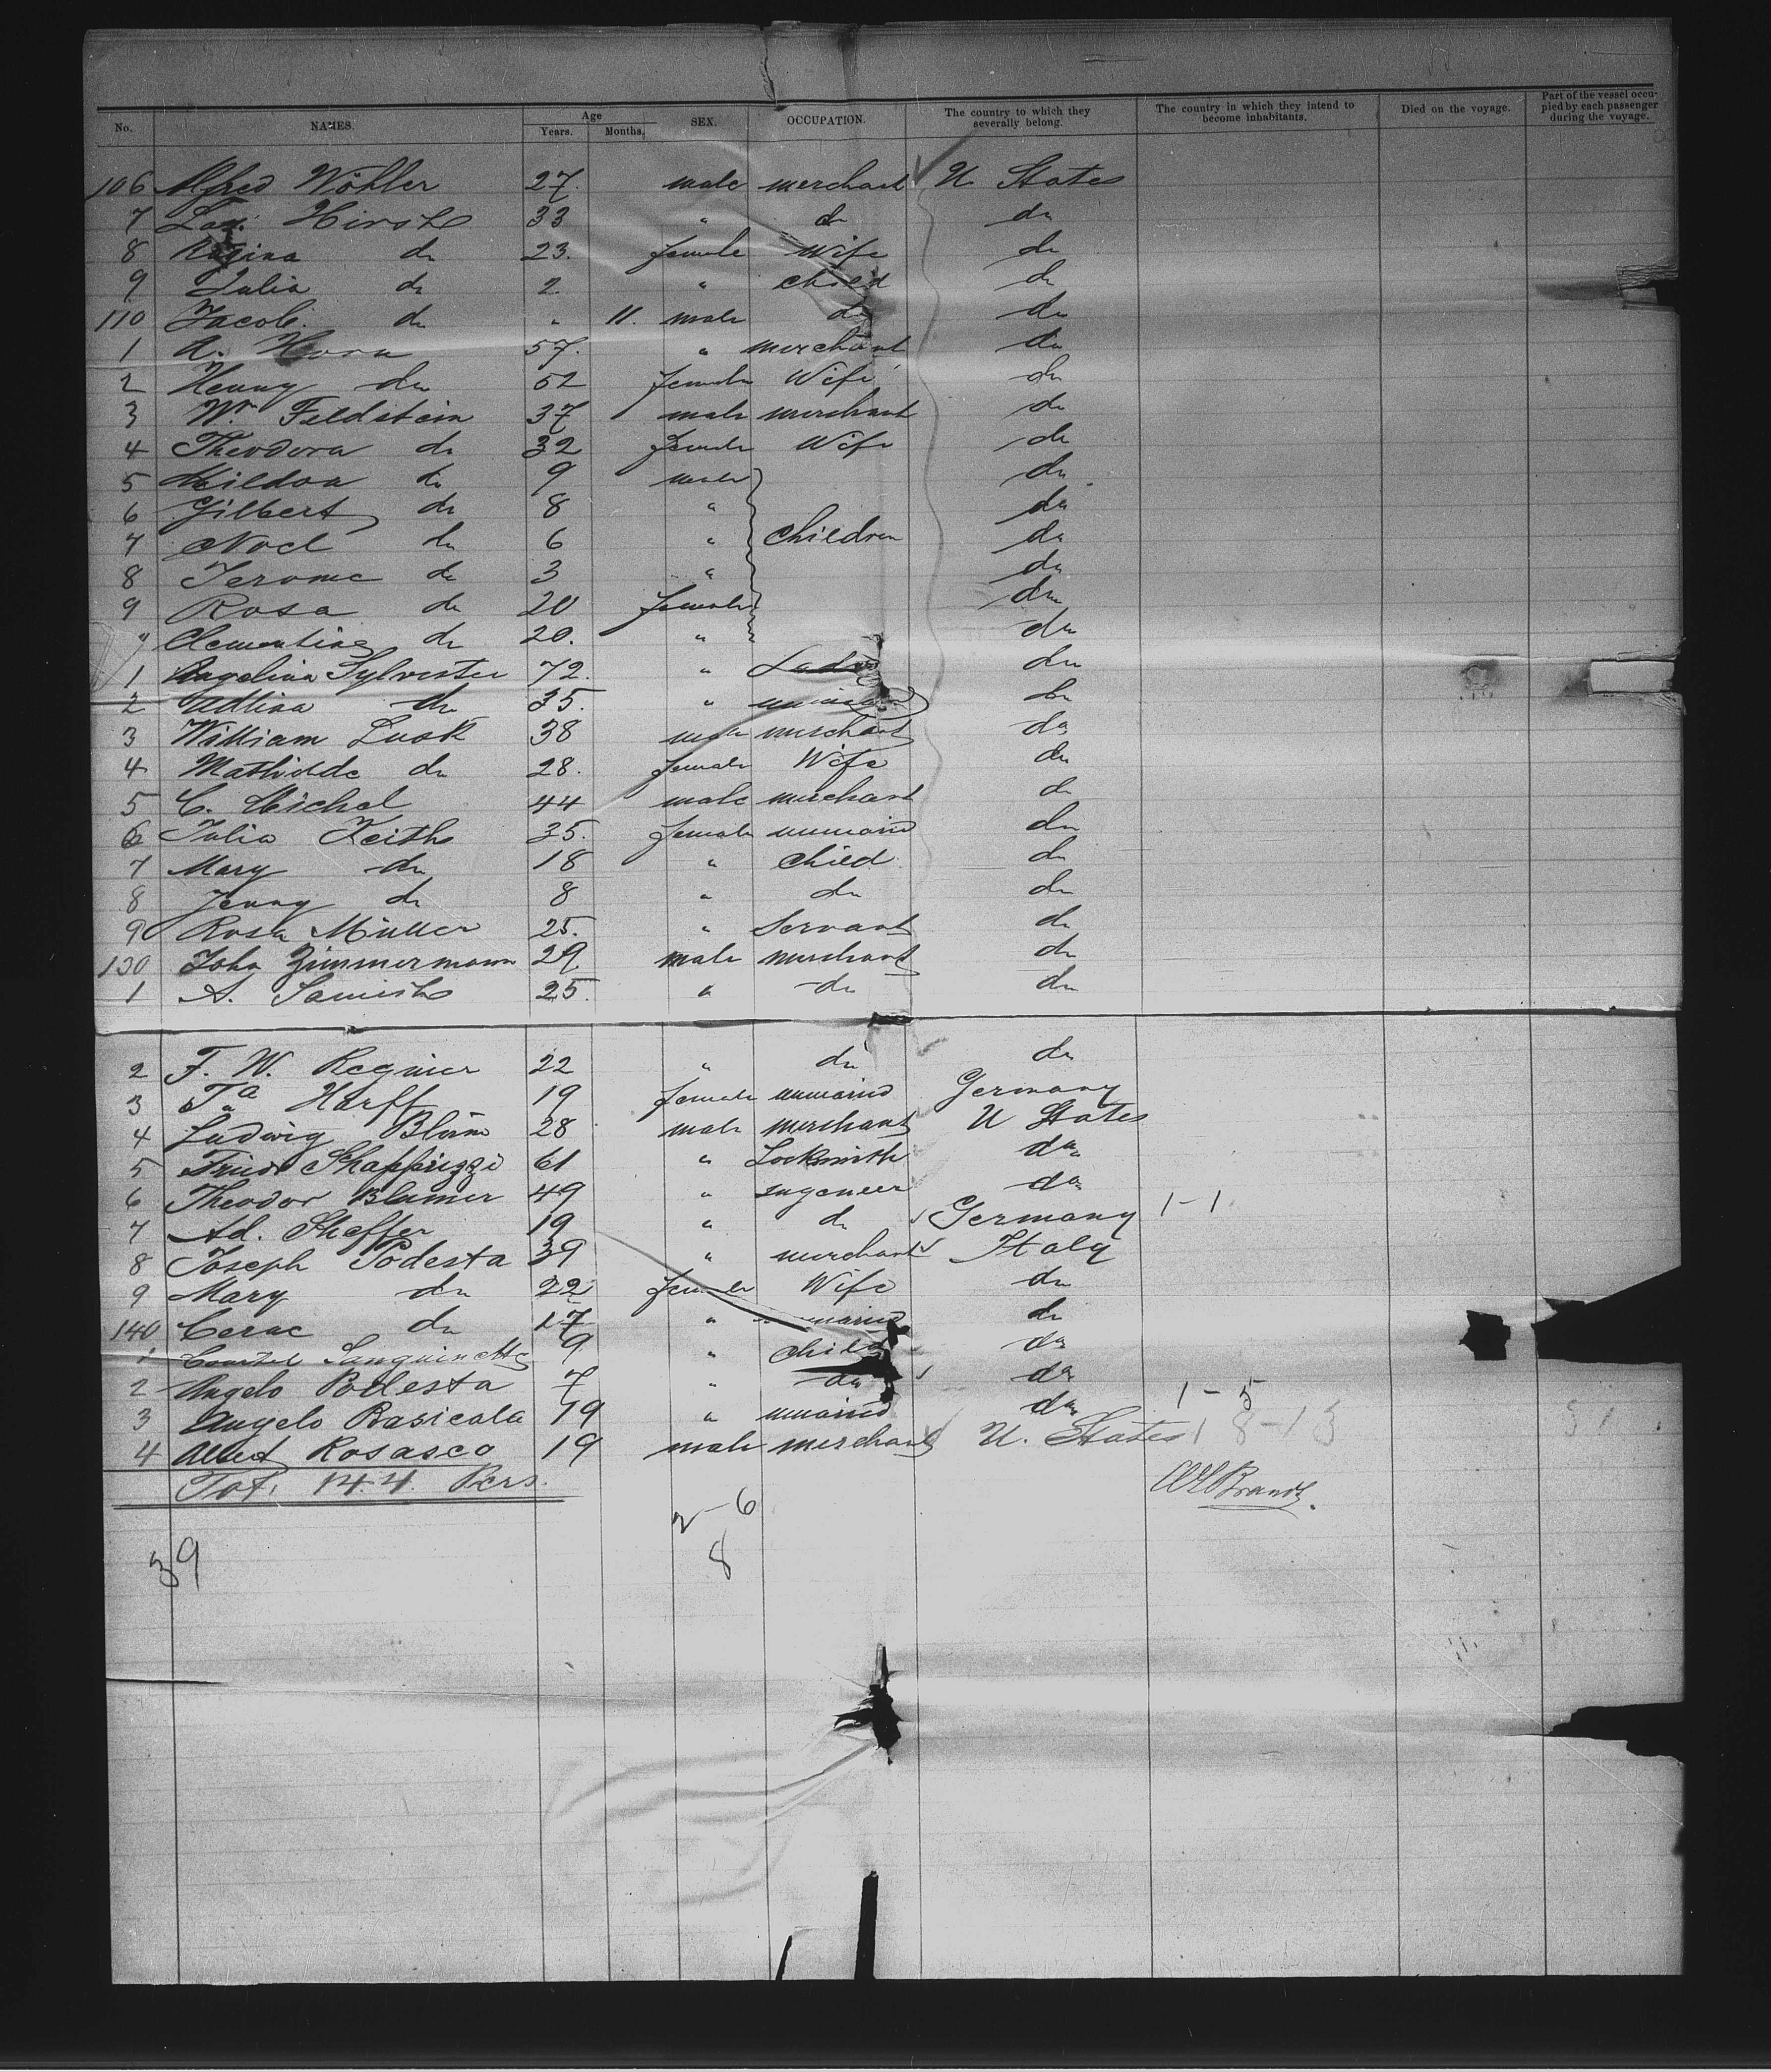 No. NAMES. Age Years. Months. SEX. OCCUPATION. The country to which they severally belong. The country in which they intend to become inhabitants. Died on the voyage. Part of the vessel occupied by each passenger during the voyage.
106 Alfred Wöhler 27. male merchant U States
7 Hirsch 33 " do do
8 Regina do 23. female Wife do
9 Julia do 2 " child do
110 Jacob. do " 11. male do do
1 A. Horn 57. " merchant do
2 Henny do 52 female Wife do
3 Wm Feldstein 37 male merchant do
4 Theodora do 32 female Wife do
5 do 9 male do
6 Gilbert do 8 " do
7 Noel do 6 " children do
8 Jerome do 3 " do
9 Rosa do 20 female do
" Clementine do 20. " do
1 Angelina Sylvester 72. " Lady do
2 Adlina do 35. " do
3 William Lusk 38 male merchant do
4 Mathilde do 28. female Wife do
5 C. Michel 44 male merchant do
6 Julia Keith 35. female unmarid do
7 Mary do 18 " child do
8 Jenny do 8 " do do
9 Rosa Müller 25. " Servant do
130 John Zimmermann 29 male merchant do
1 A. Samish 25. " do do
2 F. W. Regnier 22 " do do
3 Harff 19 female unmarid Germany
4 Ludwig Blüm 28 male merchant U States
5 61 " Locksmith do
6 Theodor Blumer 49 " ingeneer do
7 Ad. Sheffer 19 " do Germany 1-1
8 Joseph Podesta 39 " merchant Italy
9 Mary do 22 female Wife do
140 do 17 " do
1 Sanguinetti 9 " child do
2 Angelo Podesta 7 " do do
3 Angelo Basicala 19 " unmarid do 1-5
4 Albert Rosasco 19 male merchant U. States 1 8-13
Tot. 144 Pers.
2-6
39 8